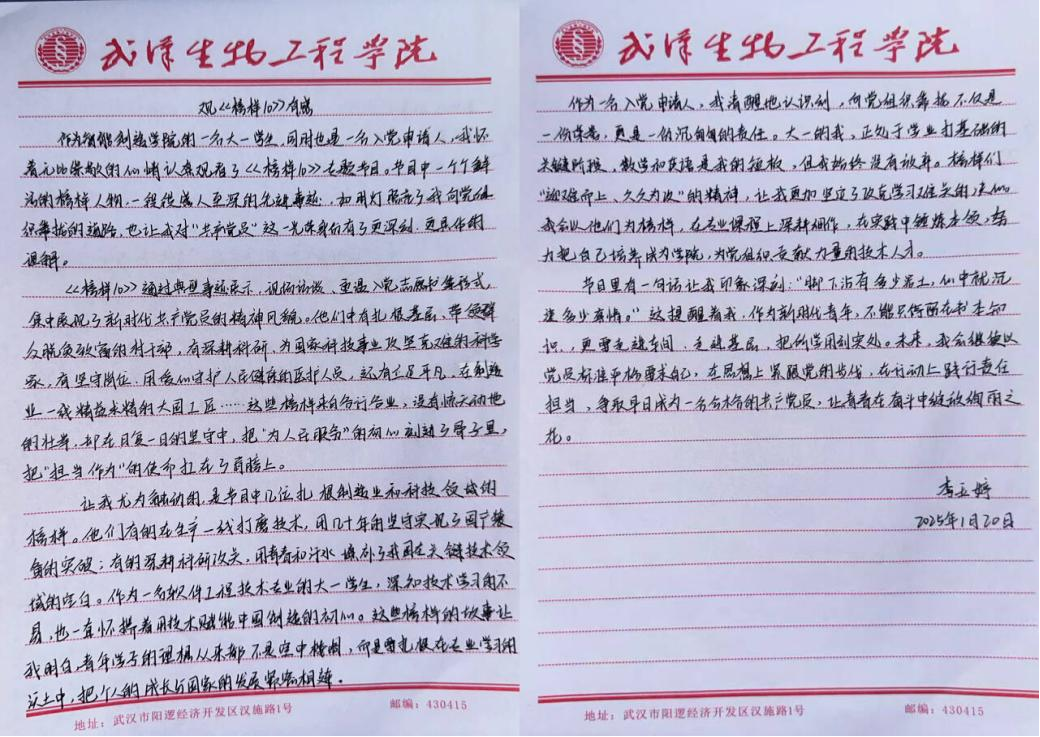 武汉生物工程学院
观《榜样10》有感
作为智能制造学院的一名大一学生，同时也是一名入党申请人，我怀
着无比崇敬的心情认真观看了《榜样10》专题节目。节目中一个个鲜
活的榜样人物，一段段感人至深的先进事迹，如明灯照亮了我向党组
织靠拢的道路，也让我对“共产党员”这一光荣身份有了更深刻、更具体的
理解。
《榜样10》通过典型事迹展示、现场访谈、重温入党志愿书等形式，
集中展现了新时代共产党员的精神风貌。他们中有扎根基层、带领群
众脱贫致富的村干部，有深耕科研、为国家科技事业攻坚克难的科学
家，有坚守岗位、用爱心守护人民健康的医护人员，还有立足平凡、在制造
业一线精益求精的大国工匠……这些榜样来自各行各业，没有惊天动地
的壮举，却在日复一日的坚守中，把“为人民服务”的初心刻进了骨子里，
把“担当作为”的使命扛在了肩膀上。
让我尤为触动的，是节目中几位扎根制造业和科技领域的
榜样。他们有的在生产一线打磨技术，用几十年的坚守实现了国产装
备的突破；有的深耕科研攻关，用青春和汗水填补了我国在关键技术领
域的空白。作为一名软件工程技术专业的大一学生，深知技术学习的不
易，也一直怀揣着用技术赋能中国制造的初心。这些榜样的故事让
我明白，青年学子的理想从来都不是空中楼阁，而是要扎根在专业学习的
沃土中，把个人的成长与国家的发展紧密相连。
地址：武汉市阳逻经济开发区汉施路1号
邮编：430415
武汉生物工程学院
作为一名入党申请人，我清醒地认识到，向党组织靠拢不仅是
一份荣誉，更是一份沉甸甸的责任。大一的我，正处于学业打基础的
关键阶段，数学和英语是我的短板，但我始终没有放弃。榜样们
“迎难而上、久久为功”的精神，让我更加坚定了攻克学习难关的决心。
我会以他们为榜样，在专业课程上深耕细作，在实践中锤炼本领，努
力把自己培养成为学院，为党组织贡献力量的技术人才。
节目里有一句话让我印象深刻：“脚下沾有多少泥土，心中就沉
淀多少真情。”这提醒着我，作为新时代青年，不能只停留在书本知
识，更要走进车间、走进基层，把所学用到实处。未来，我会继续以
党员标准严格要求自己，在思想上紧跟党的步伐，在行动上践行责任
担当，争取早日成为一名合格的共产党员，让青春在奋斗中绽放绚丽之
花。
李玉婷
2025年1月20日
地址：武汉市阳逻经济开发区汉施路1号
邮编：430415